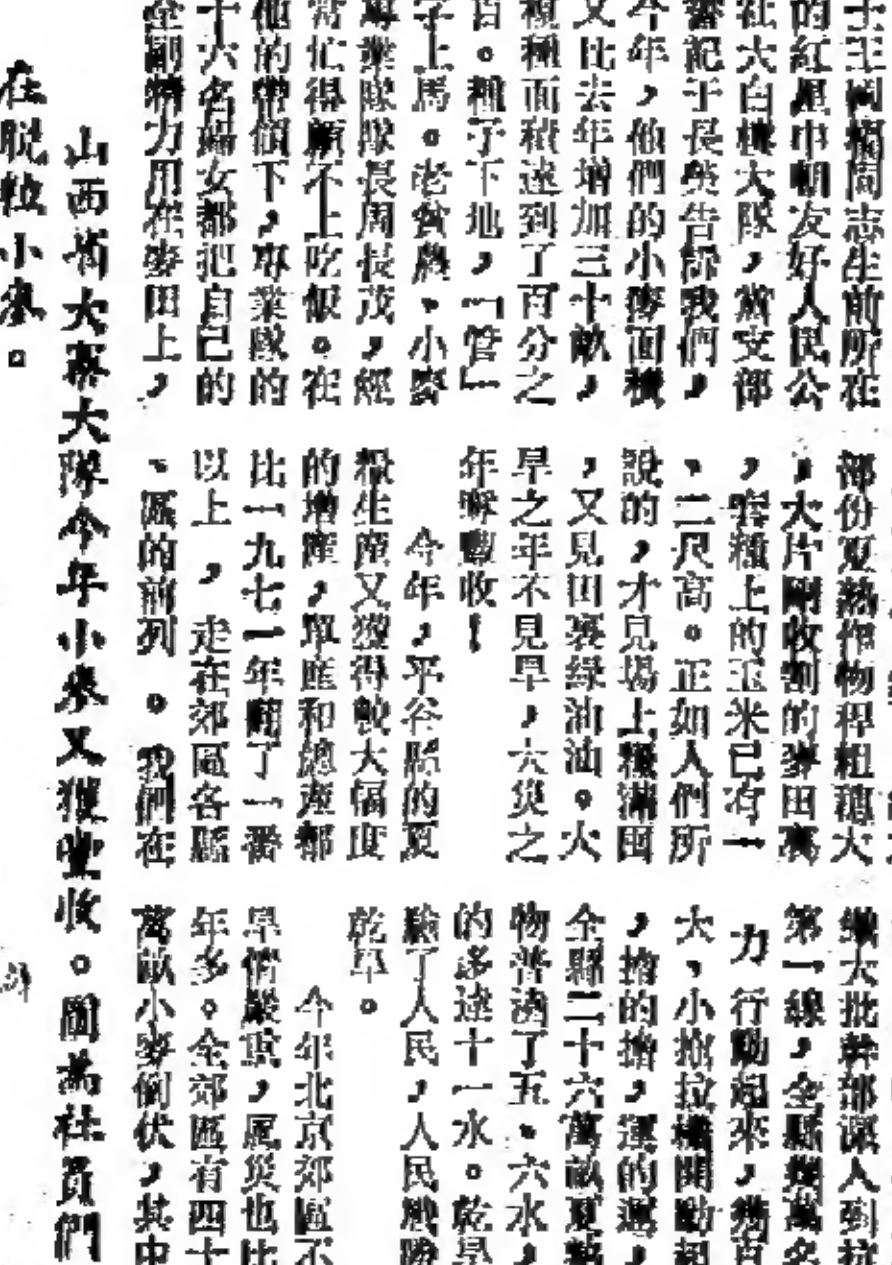 士王國福同志生前所在
的紅星中朝友好人民公
社大白樓大隊，黨支部
書記于長榮告訴我們，
今年，他們的小麥面積
又比去年增加三十畝，
複種面積達到了百分之
百。種子下地，「管」
字上馬。老貧農、小麥
專業隊隊長周長茂，經
常忙得顧不上吃飯。在
他的帶領下，專業隊的
十六名婦女都把自己的
全副精力用在麥田上，
部份夏熟作物稈粗穗大
，大片剛收割的麥田裏
，套種上的玉米已有一
、二尺高。正如人們所
說的，才見場上糧滿囤
，又見田裏綠油油。大
旱之年不見旱，大災之
年奪豐收！
今年，平谷縣的夏
糧生產又獲得較大幅度
的增產，單產和總產都
比一九七一年翻了一番
以上，走在郊區各縣
、區的前列。我們在
大批幹部深入到抗
第一線，全縣幾萬名
力行動起來，幾百
大、小拖拉機開動起
，擔的擔，運的運，
全縣二十六萬畝夏熟
物普澆了五、六水，
的多達十一水。乾旱
驗了人民，人民戰勝
乾旱。
今年北京郊區不
旱情嚴重，風災也比
年多。全郊區有四十
萬畝小麥倒伏，其中
山西省大寨大隊今年小麥又獲豐收。圖為社員們
在脫粒小麥。